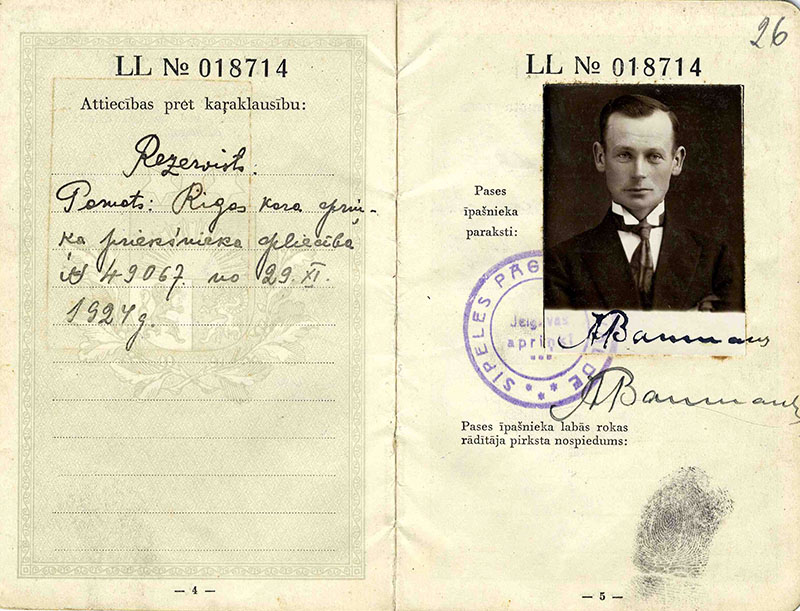 LL № 018714
Attiecības pret kaŗaklausību:
Rezervists.
Pamats: Rīgas kara aprin-
ķa priekšnieka apliecība
№ 49067. no 29. XI.
1924 g.
— 4 —
26
LL № 018714
Pases
īpašnieka
paraksti:
SIPELES PAG
DE
Jelgavas
apriņķī
ABaumans
ABaumans
Pases īpašnieka labās rokas
rādītāja pirksta nospiedums:
— 5 —